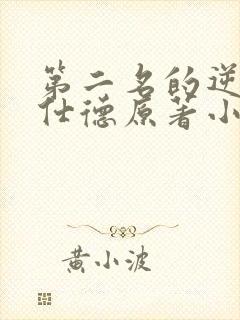 第二名的逆
仕德原著小
黄小波